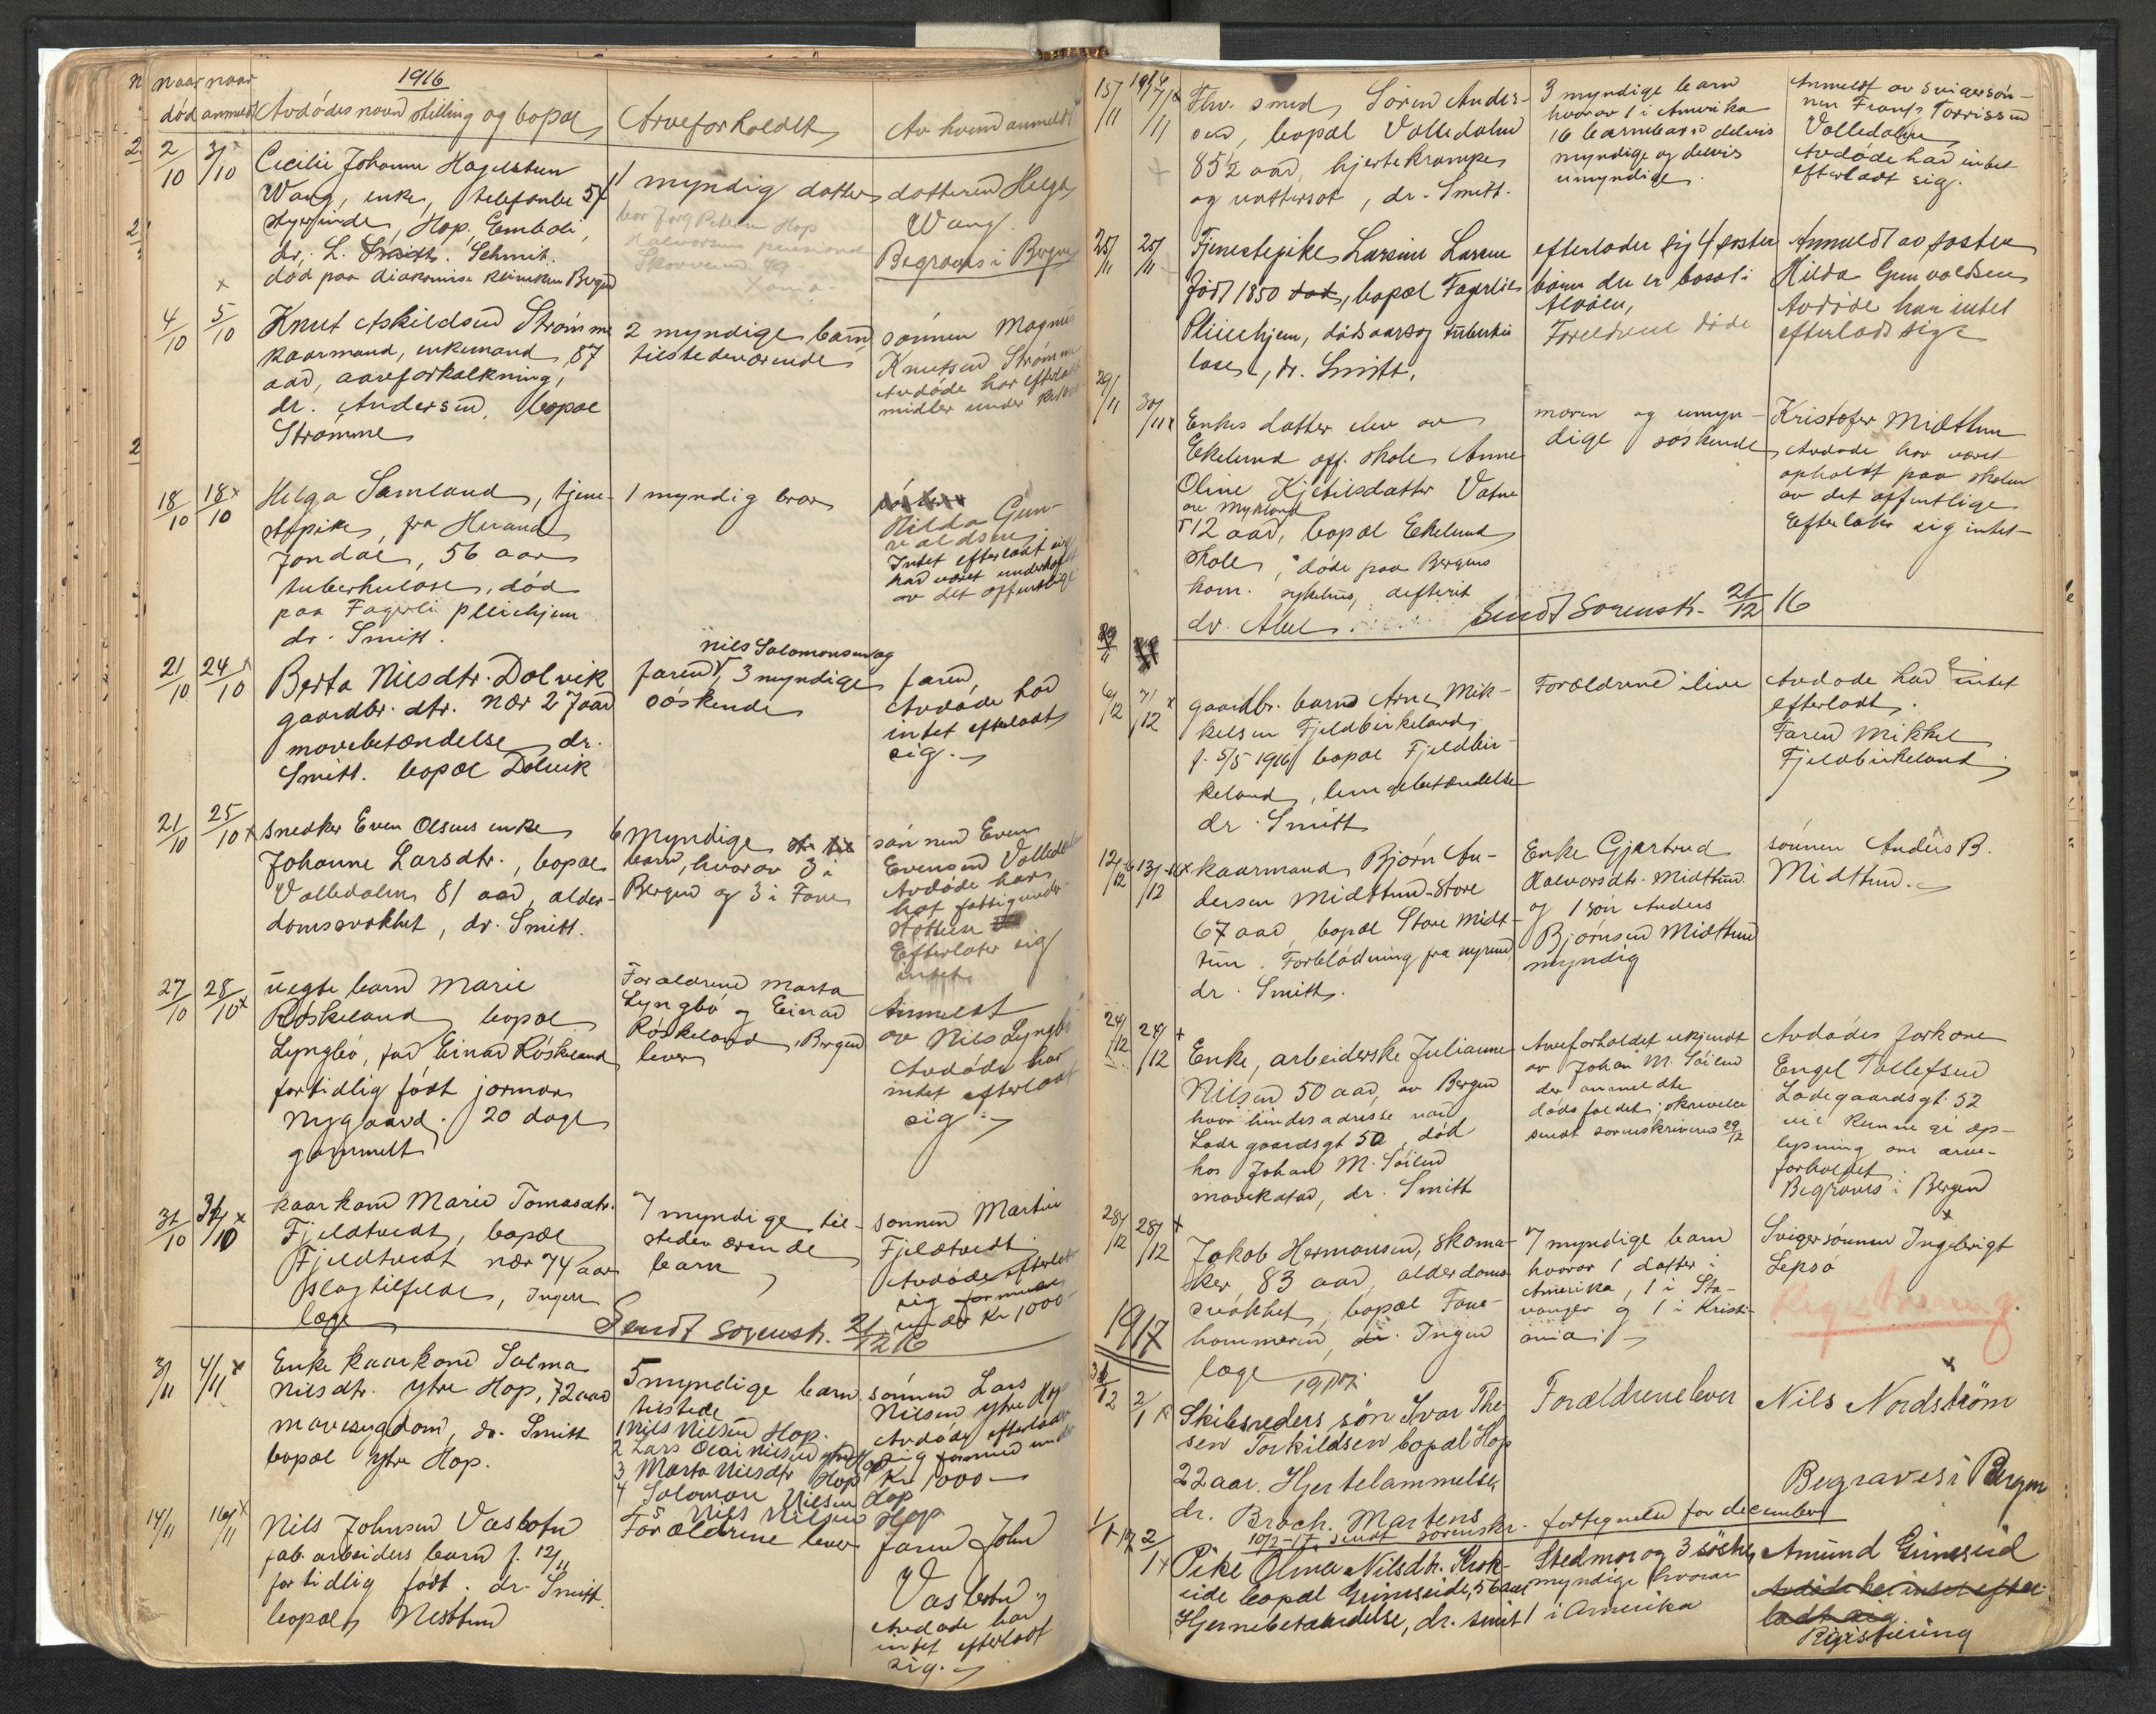 1916
naar død
naar anmeldt
Avdødes navn stilling og bopæl
Arveforholdet
Av hvem anmeldt
2/10
3/10
Cecilie Johanne Hagelsteen
Wang, enke, telefonbe
styrerinde, Hop, Emboli,
dr. L. Schmit.
død paa diakonisse kliniken Bergen
1 myndig datter
Halvorsens pensionat
datteren Helga
Wang.
Begraves i Bergen
4/10
5/10
Knut Askildsen Strømme
kaarmand, enkemand, 87
aar, aareforkalkning,
dr. Andersen, bopæl
Strømme
2 myndige barn
tilstedeværende
sønnen Magnus
Knutsen Strømme
Avdøde har efterladt
midler under kr 1000
18/10
18/10
Helga Samland, tjene-
stepike, fra Herand
Jondal, 56 aar
tuberkulose, død
paa Fagerli pleiehjem
dr. Smitt.
1 myndig bror
Hilda Gun-
valdsen
Intet efterladt sig
har været underholdt
av det offentlige
21/10
24/10
Berta Nilsdtr. Dolvik
gaardbr. dtr. nær 27 aar
mavebetændelse, dr.
Smitt. bopæl Dolvik
nils Salomonsen og
faren, 3 myndige
søskende
faren,
Avdøde har
intet efterladt
sig.
21/10
25/10
Snedker Even Olsens enke
Johanne Larsdtr., bopæl
Valledalen 81 aar, alder-
domssvakhet, dr. Smitt.
6 myndige
barn, hvorav 3 i
Bergen og 3 i Fane
sønnen Even
Evensen Valledalen
Avdøde har
hat fattigunder-
støttelse
Efterlater sig
intet
27/10
28/10
uegte barn Marie
Røskeland bopæl
Lyngbø, far Einar Røskeland
for tidlig født jormor
Nygaard. 20 dage
gammelt
Forældrene Marta
Lyngbø og Einar
Røskeland, Bergen
lever
Anmeldt
av Nils Lyngbø
Avdøde har
intet efterladt
sig.
31/10
31/10
kaarkone Marie Tomasdtr.
Fjeldtvedt, bopæl
Fjeldtvedt nær 74 aar
slagtilfelde, Ingen
læge
7 myndige til-
stedeværende
barn
sønnen Martin
Fjeldtvedt
Avdøde efterlater
sig formue
under kr 1000
Sendt sorenskr. 21/12 16
3/11
4/11
Enke kaarkone Salma
Nilsdtr. ytre Hop, 72 aar
mavesygdom, dr. Smitt
bopæl ytre Hop.
5 myndige barn
tilstede
1 Nils Nilsen Hop.
2 Lars Olai Nilsen ytre Hop
3 Marta Nilsdtr Hop
4 Salomon Nilsen Hop
5 Nils Nilsen Hop
sønnen Lars
Nilsen ytre Hop
Avdøde efterlader
sig formue under
kr 1000
14/11
16/11
Nils Johnsen Vasbotn
fab. arbeiders barn f. 12/11
for tidlig født. dr. Smitt.
bopæl Nesttun
Forældrene lever
faren John
Vasbotn
Avdøde har
intet efterladt
sig.
15/11
17/11
Fhv. smed Søren Ander-
sen, bopæl Valledalen
85½ aar, hjertekrampe
og vattersot, dr. Smitt.
3 myndige barn
hvorav 1 i Amerika
16 barnebarn delvis
myndige og delvis
umyndige.
Anmeldt av svigersøn-
nen Frants Torrissen
Valledalen
Avdøde har intet
efterladt sig.
25/11
25/11
Tjenestepike Larsine Larsen
født 1850, bopæl Fagerlie
Pleiehjem, dødsaarsag tuberku
lose, dr. Smitt.
efterlader sig 4 søster
børn der er bosat i
Alvøen,
Foreldrene døde
Anmeldt av søster
Hilda Gunvaldsen
Avdøde har intet
efterladt sig
29/11
30/11
Enkes datter elev av
Ekelund off. skole Anne
Oline Kjetilsdatter Vatne
av Mykland
12 aar, bopæl Ekelund
skole, døde paa Bergens
kom. sykehus, difterit
dr. Abel
moren og umyn-
dige søskende
Kristofer Midttun
Avdøde har været
opholdt paa skolen
av det offentlige
Efterlater sig intet
Sendt sorenskr. 21/12 16
6/12
7/12
gaardbr. barn Arne Mik-
kelsen Fjeldbirkeland
f. 5/5 1916 bopæl Fjeldbir-
keland, lungebetændelse
dr. Smitt
Forældrene i live
Avdøde har intet
efterladt.
Faren Mikkel
Fjeldbirkeland
12/12
13/12
kaarmand Bjørn An-
dersen Midttun-Store
67 aar, bopæl Store Midt-
tun. Forblødning fra nyrene
dr. Smitt.
Enke Gjertrud
Halvorsdtr. Midttun
og 1 søn Anders
Bjørnsen Midttun
myndig
sønnen Anders B.
Midttun.
24/12
24/12
Enke, arbeiderske Julianne
Nilsen 50 aar, av Bergen
hvor hindes adresse var
Ladegaardsgt 50, død
hos Johan M. Søilen
mavekatar, dr. Smitt
Arveforholdet ukjendt
av Johan M. Søilen
der anmeldte
dødsfaldet; skrivelse
sendt sorenskriveren 29/12
Avdødes forkone
Engel Tollefsen
Ladegaardsgt. 52
vil kunne gi op-
lysning om arve-
forholdet.
Begraves i Bergen
28/12
28/12
Jakob Hermansen, skoma-
ker 83 aar, alderdoms
svakhet, bopæl Fane-
hammeren, Ingen
læge
7 myndige barn
hvorav 1 datter i
Amerika, 1 i Sta-
vanger og 1 i Kristi-
ania
Svigersønnen Ingebrigt
Lepsø
Registrering.
1917
1917.
31/12
2/1
Skibsreders søn Ivar The-
sen Torkildsen bopæl Hop
22 aar. Hjertelammelse,
dr. Broch. Martens
Forældrene lever
Nils Nordstrøm
Begraves i Bergen
10/2-17 sendt sorenskr. fortegnelse for december
1/1-17
2/1
Pike Olina Nilsdtr. Krok-
eide bopæl Grimseide, 56 aar
Hjernebetændelse, dr. Smit
Stedmor og 3 søsken
myndige hvorav
1 i Amerika
Amund Grimseid
Avdøde har intet efter-
ladt sig.
Registrering